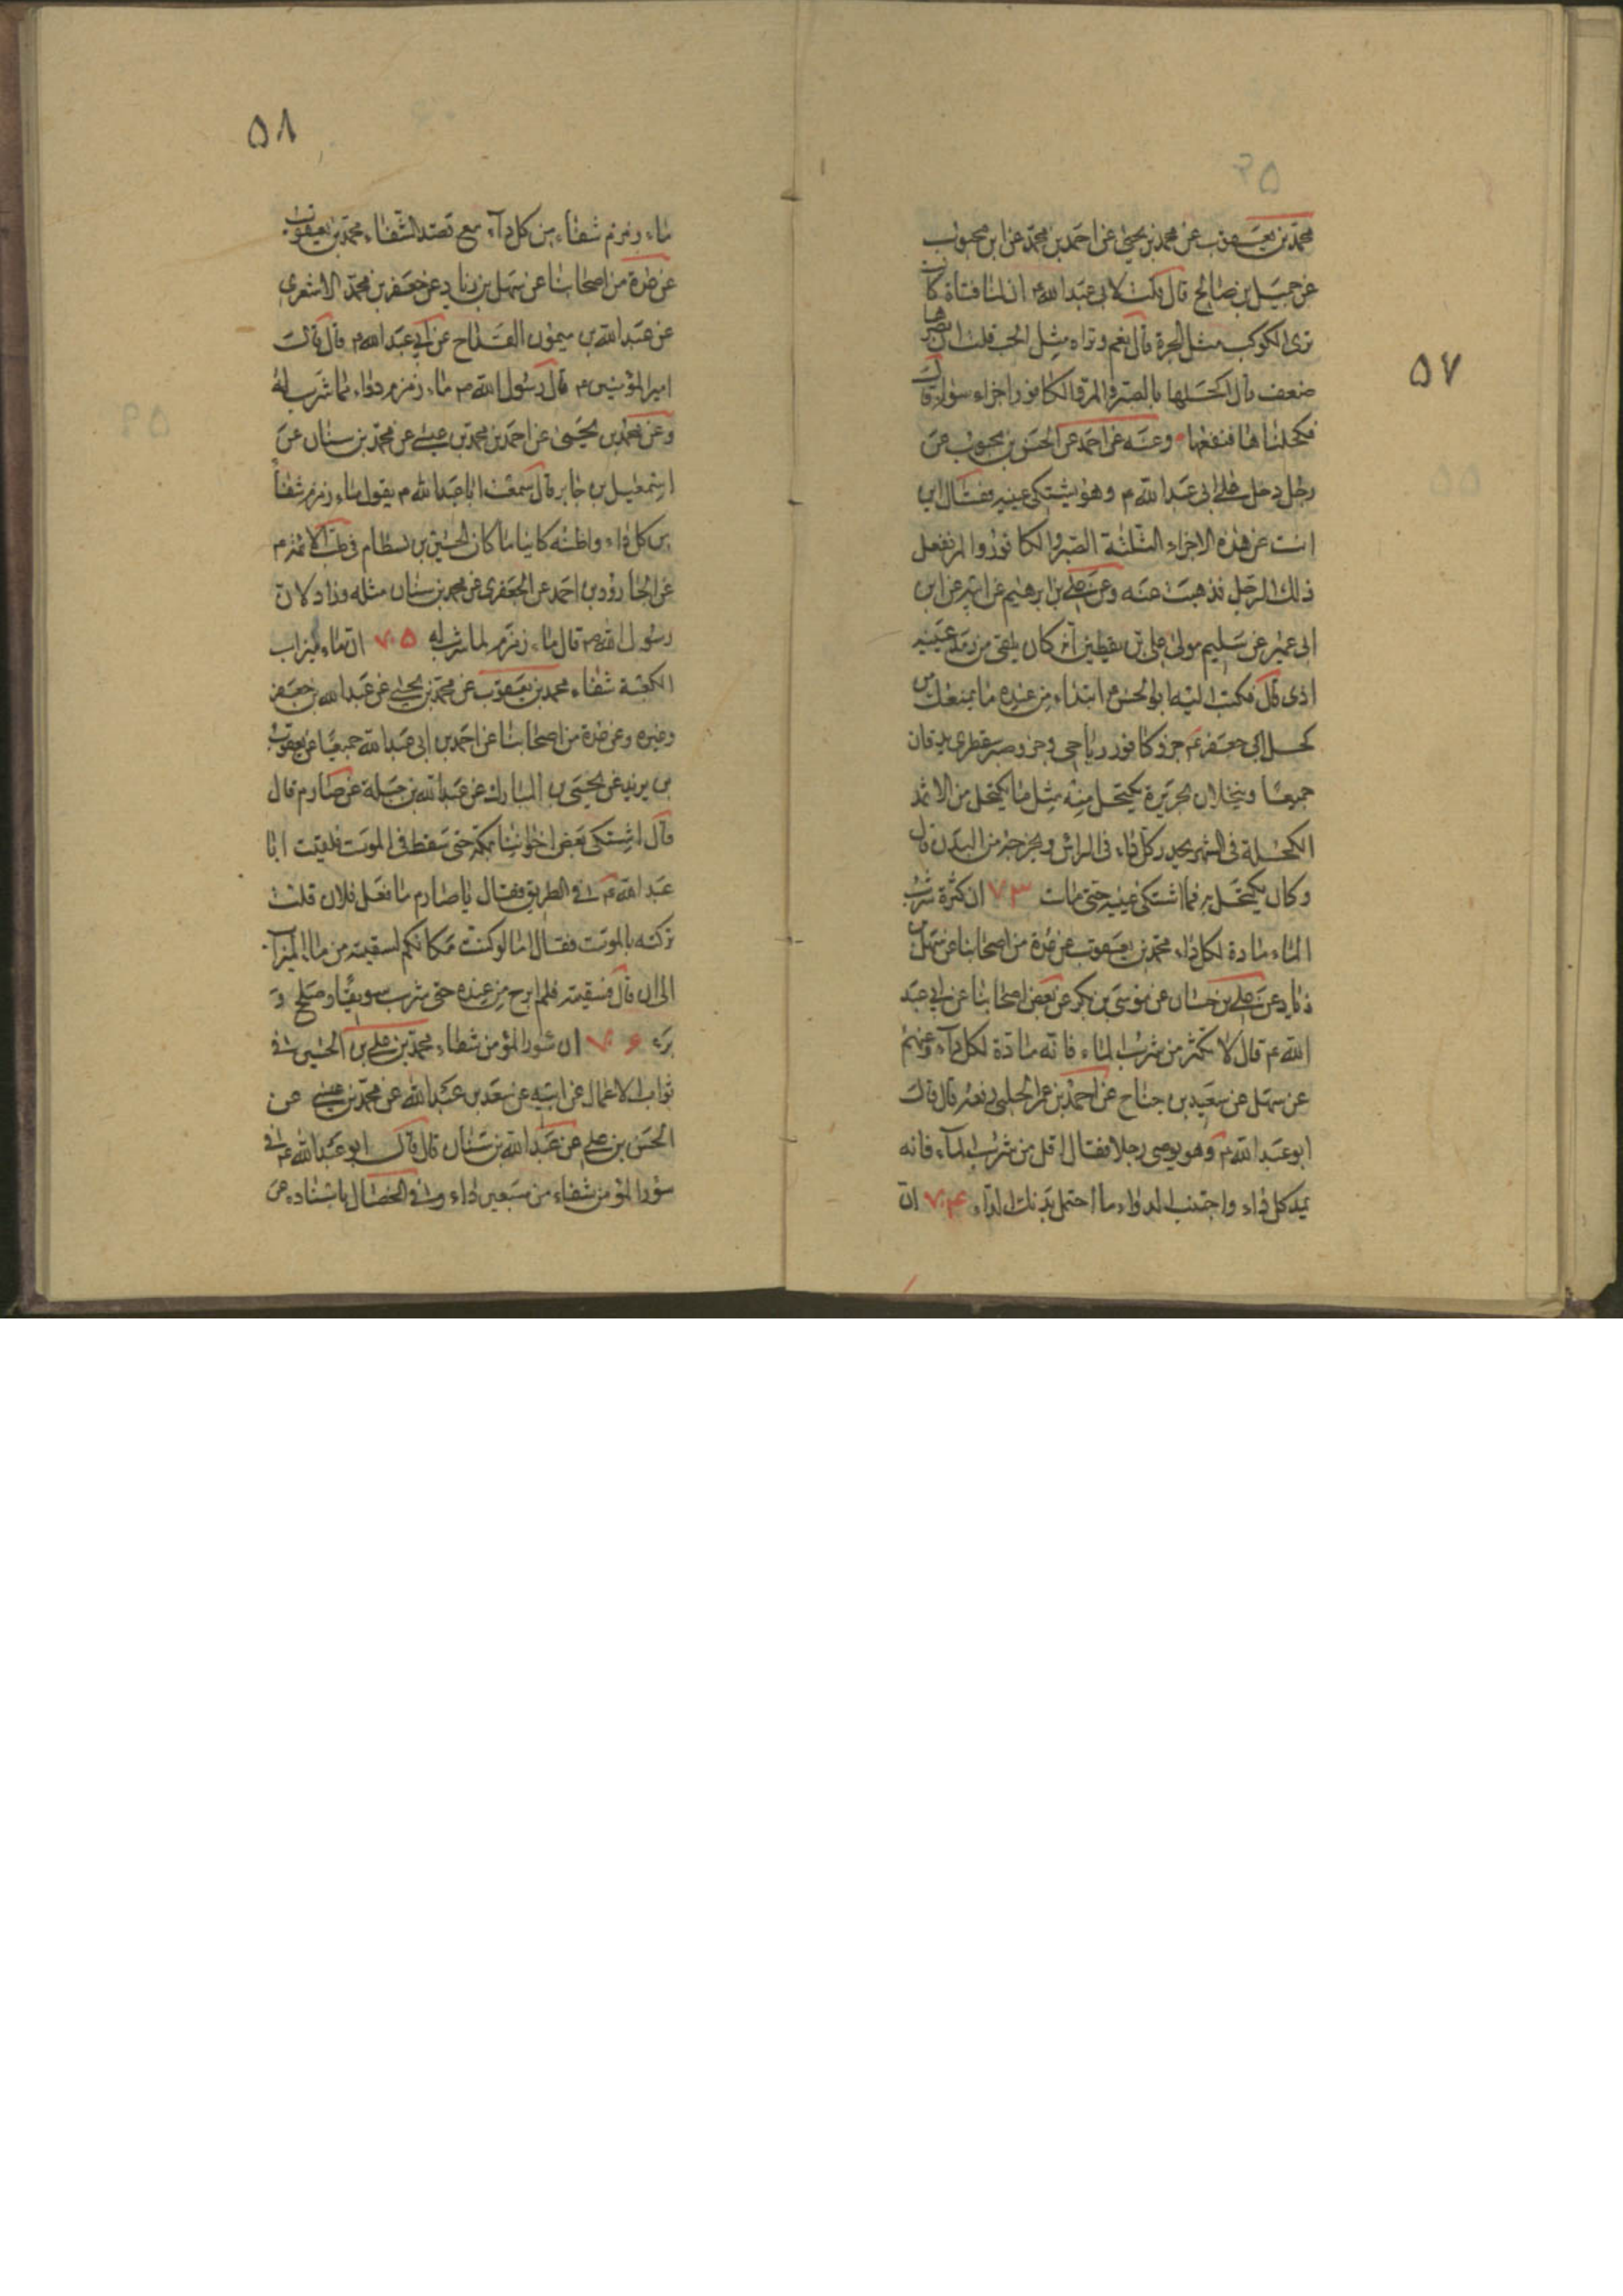 ۵۷
محمد بن يعقوب عن محمد بن يحيى عن احمد بن محمد عن ابن محبوب
عن جميل بن صالح قال قلت لابى عبد الله ع ان لنا فتاة كانت
ترى الكوكب مثل الجرة قال نعم وتراه مثل الحب قلت ان بصرها
ضعف قال اكحلها بالصبر والمر والكافور اجزاء سواء قال
فكحلناها فنفعها وعنه عن احمد عن الحسن بن محبوب عن
رجل دخل على ابى عبد الله م وهو يشتكى عينيه فقال اين
انت عن هذه الاجزاء الثلثة الصبر والكافور والمر ففعل
ذلك الرجل فذهبت عنه وعن على بن ابرهيم عن ابيه عن ابن
ابى عمير عن سليم مولى على بن يقطين انه كان يلقى من رمد عينيه
اذى قال فكتب اليه ابو الحسن ع ابتداء من عنده ما يمنعك من
كحل ابى جعفر ع جزو كافور رباحى وجزو صبر سقطرى يدقان
جميعا وينخلان بحريرة يكتحل منه مثل ما يكتحل من الاثمد
الكحلة فى الشهر يحدر كل داء فى الراس ويخرجه من البدن قال
وكان يكتحل به فما اشتكى عينيه حتى مات ۷۳ ان كثرة شرب
الماء مادة لكل داء محمد بن يعقوب عن عدة من اصحابنا عن سهل بن
زياد عن على بن حسان عن موسى بن بكر عن بعض اصحابنا عن ابى عبد
الله ع قال لا تكثر من شرب الماء فانه مادة لكل داء وعنهم
عن سهل عن سعيد بن جناح عن احمد بن عمر الحلبى رفعه قال قال
ابو عبد الله ع وهو يوصى رجلا فقال اقل من شرب الماء فانه
يمد كل داء واجتنب الدواء ما احتمل بدنك الداء ۷۴ ان
۵۸
ماء زمزم شفاء من كل داء مع قصد الشفاء محمد بن يعقوب
عن عدة من اصحابنا عن سهل بن زياد عن جعفر بن محمد الاشعرى
عن عبد الله بن ميمون القداح عن ابى عبد الله م قال قال
امير المؤمنين ع قال رسول الله ص ماء زمزم دواء لما شرب له
وعن محمد بن يحيى عن احمد بن محمد بن عيسى عن محمد بن سنان عن
اسمعيل بن جابر قال سمعت ابا عبد الله م يقول ماء زمزم شفاء
من كل داء واظنه كاينا ما كان الحسين بن بسطام فى طب الائمة م
عن الجارود بن احمد عن الجعفرى عن محمد بن سنان مثله وزاد لان
رسول الله ص قال ماء زمزم لما شرب له ۷۵ ان ماء ميزاب
الكعبة شفاء محمد بن يعقوب عن محمد بن يحيى عن عبد الله بن جعفر
وغيره وعن عدة من اصحابنا عن احمد بن ابى عبد الله جميعا عن يعقوب
بن يزيد عن يحيى بن المبارك عن عبد الله بن جبلة عن صارم قال
قال اشتكى بعض اخواننا بمكة حتى سقط فى الموت فلقيت ابا
عبد الله ع فى الطريق فقال يا صارم ما فعل فلان قلت
تركته بالموت فقال اما لو كنت مكانكم لسقيته من ماء الميزاب
الى ان قال فسقيته فلم ابرح من عنده حتى شرب سويقا وصلح و
برء ۷۶ ان سور المؤمن شفاء محمد بن على بن الحسين فى
ثواب الاعمال عن ابيه عن سعد بن عبد الله عن محمد بن عيسى عن
الحسن بن على عن عبد الله بن سنان قال قال ابو عبد الله ع فى
سور المؤمن شفاء من سبعين داء وفى الخصال باسناده عن